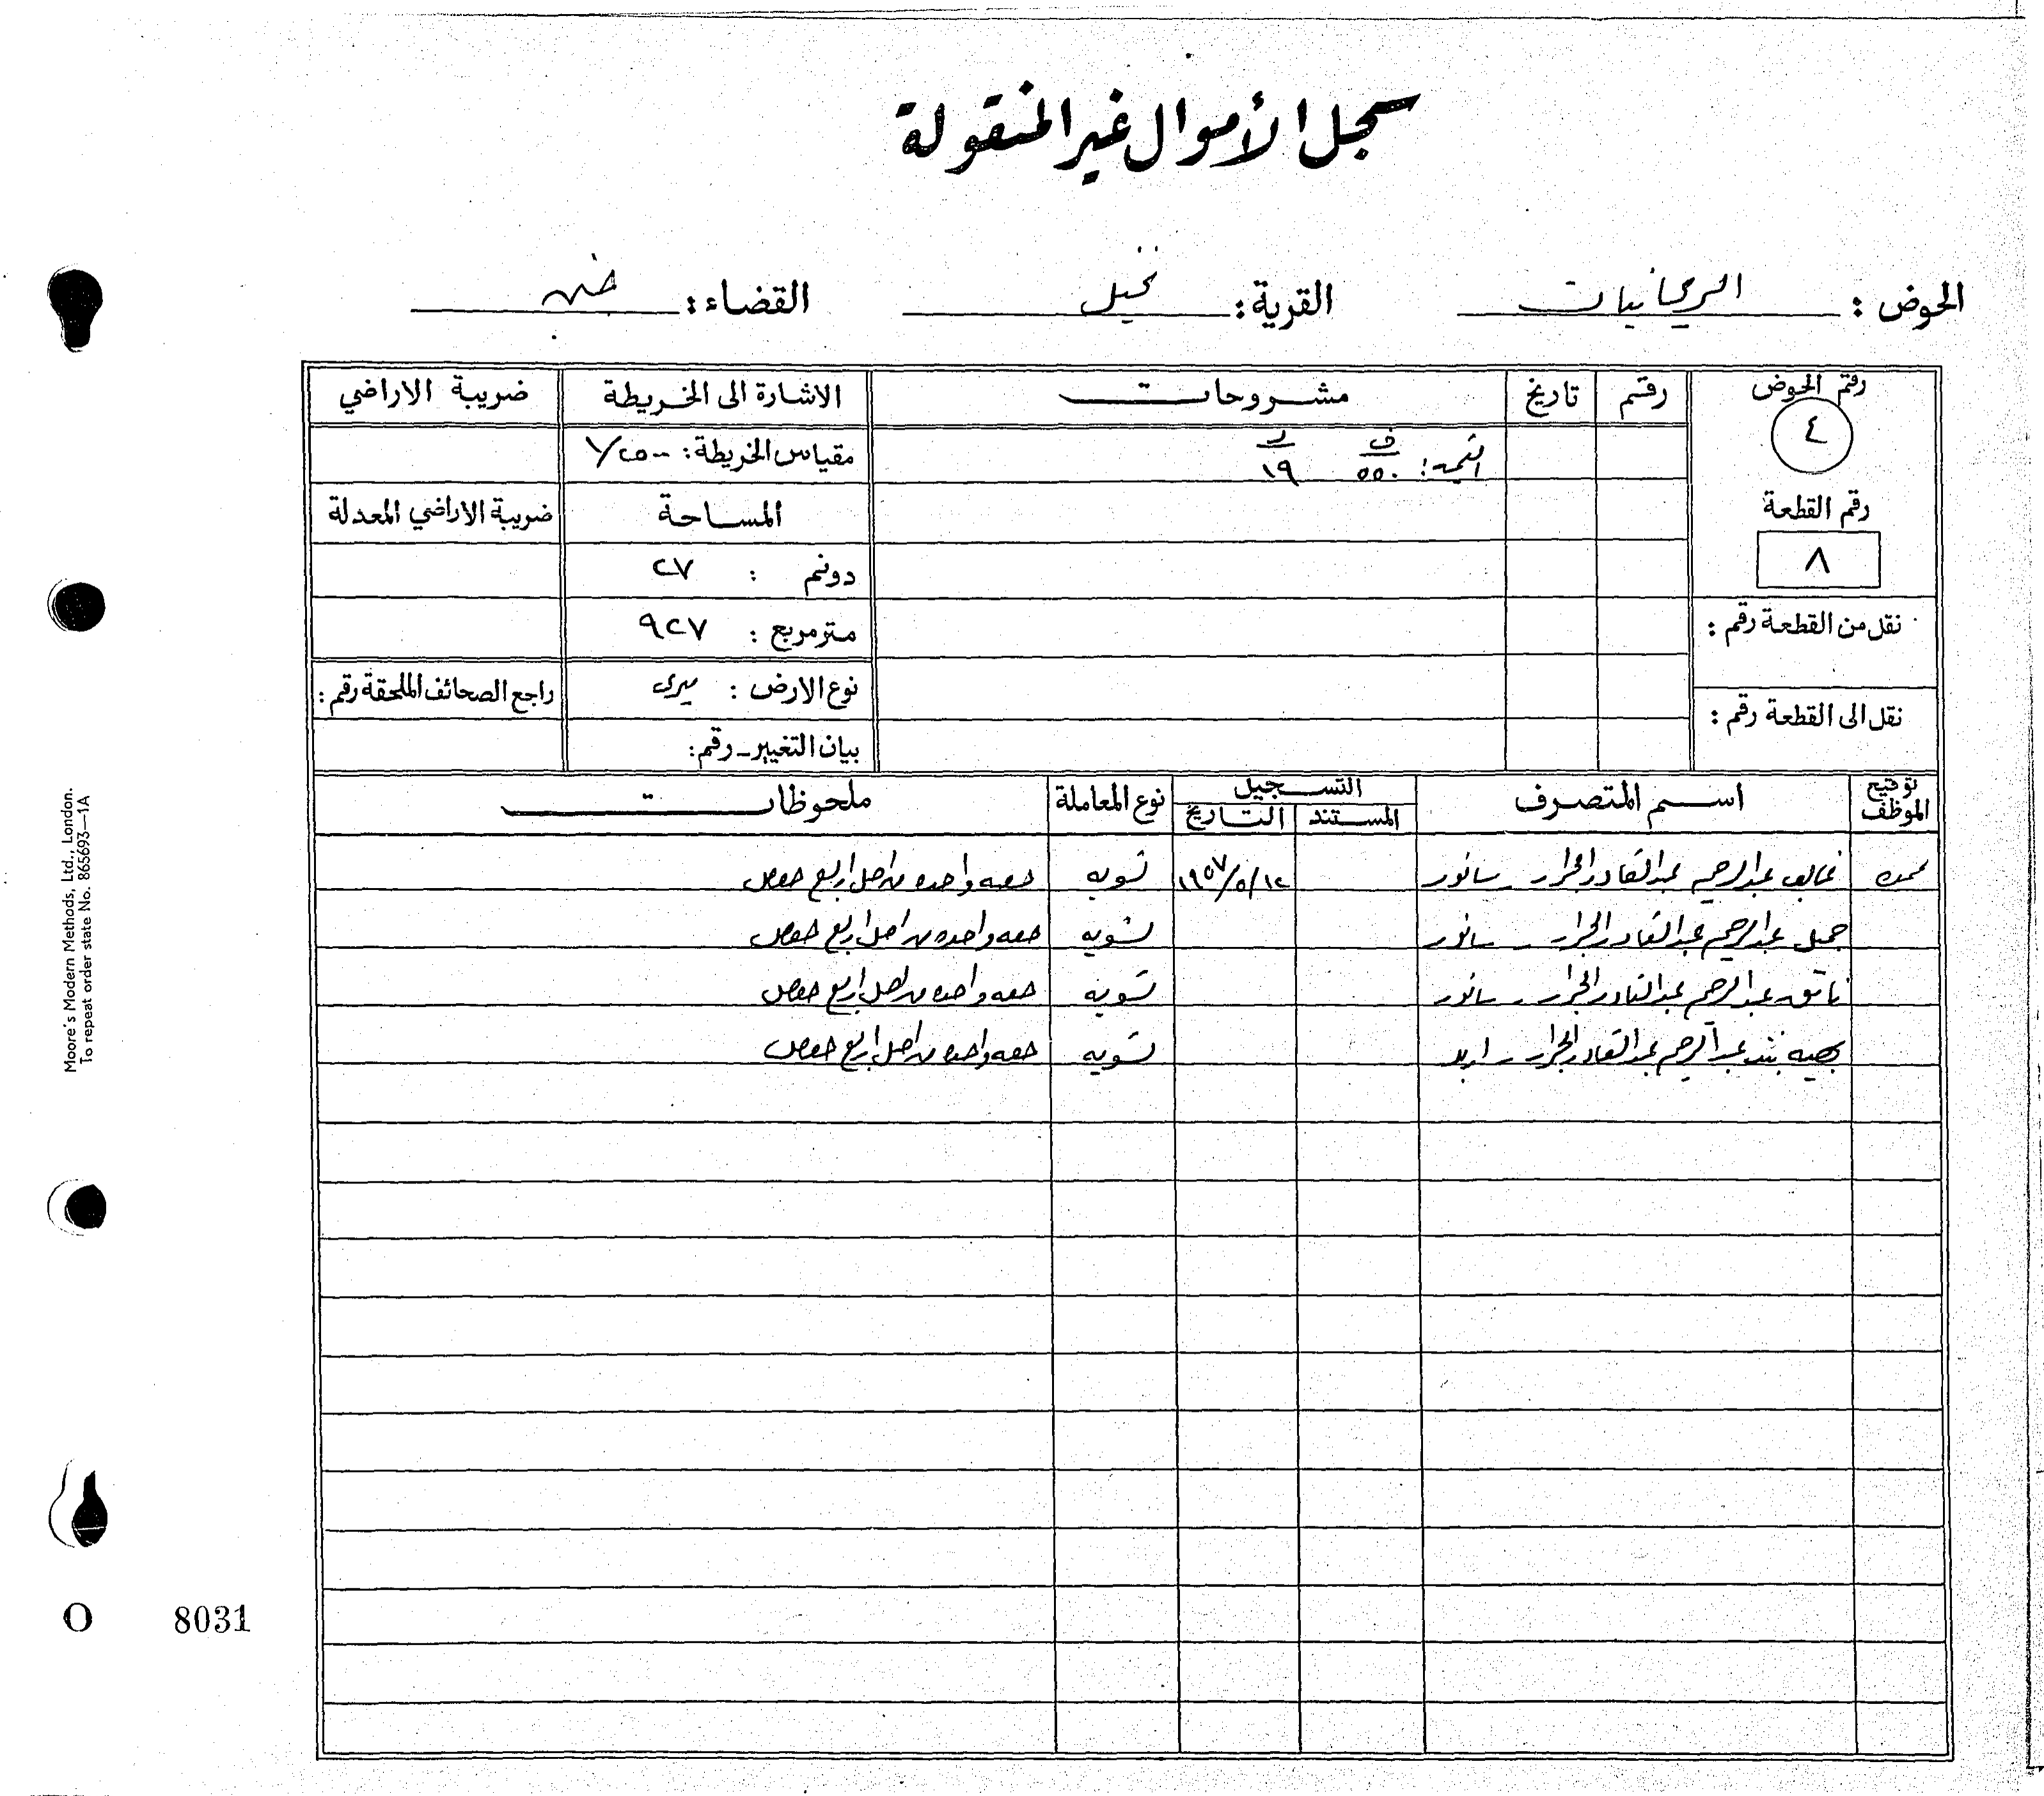 سجل الأموال غير المنقولة
الحوض : الريحانيات القرية : نخيل القضاء : جنين
رقم الحوض رقم تاريخ مشروحات الاشارة الى الخريطة ضريبة الاراضي
٤
القيمة : ف ٥٥٠ د ١٩ مقياس الخريطة : ١/٢٥٠٠
رقم القطعة المساحة ضريبة الاراضي المعدلة
٨ دونم : ٢٧
نقل من القطعة رقم : متر مربع : ٩٢٧
نوع الارض : ميري راجع الصحائف الملحقة رقم :
نقل الى القطعة رقم :
بيان التغيير - رقم :
توقيع الموظف اسم المتصرف التسجيل نوع المعاملة ملحوظات
المستند التاريخ
غالب عبد الرحيم عبد القادر الجرار - سانور ١٩٥٧/٥/١٢ تسويه حصه واحده من اصل اربع حصص
جميل عبد الرحيم عبد القادر الجرار - سانور تسويه حصه واحده من اصل اربع حصص
عبد الرحيم عبد القادر الجرار - سانور تسويه حصه واحده من اصل اربع حصص
بهيه بنت عبد الرحيم عبد القادر الجرار - اربد تسويه حصه واحده من اصل اربع حصص
Moore's Modern Methods, Ltd., London.
To repeat order state No. 865693—1A
O 8031